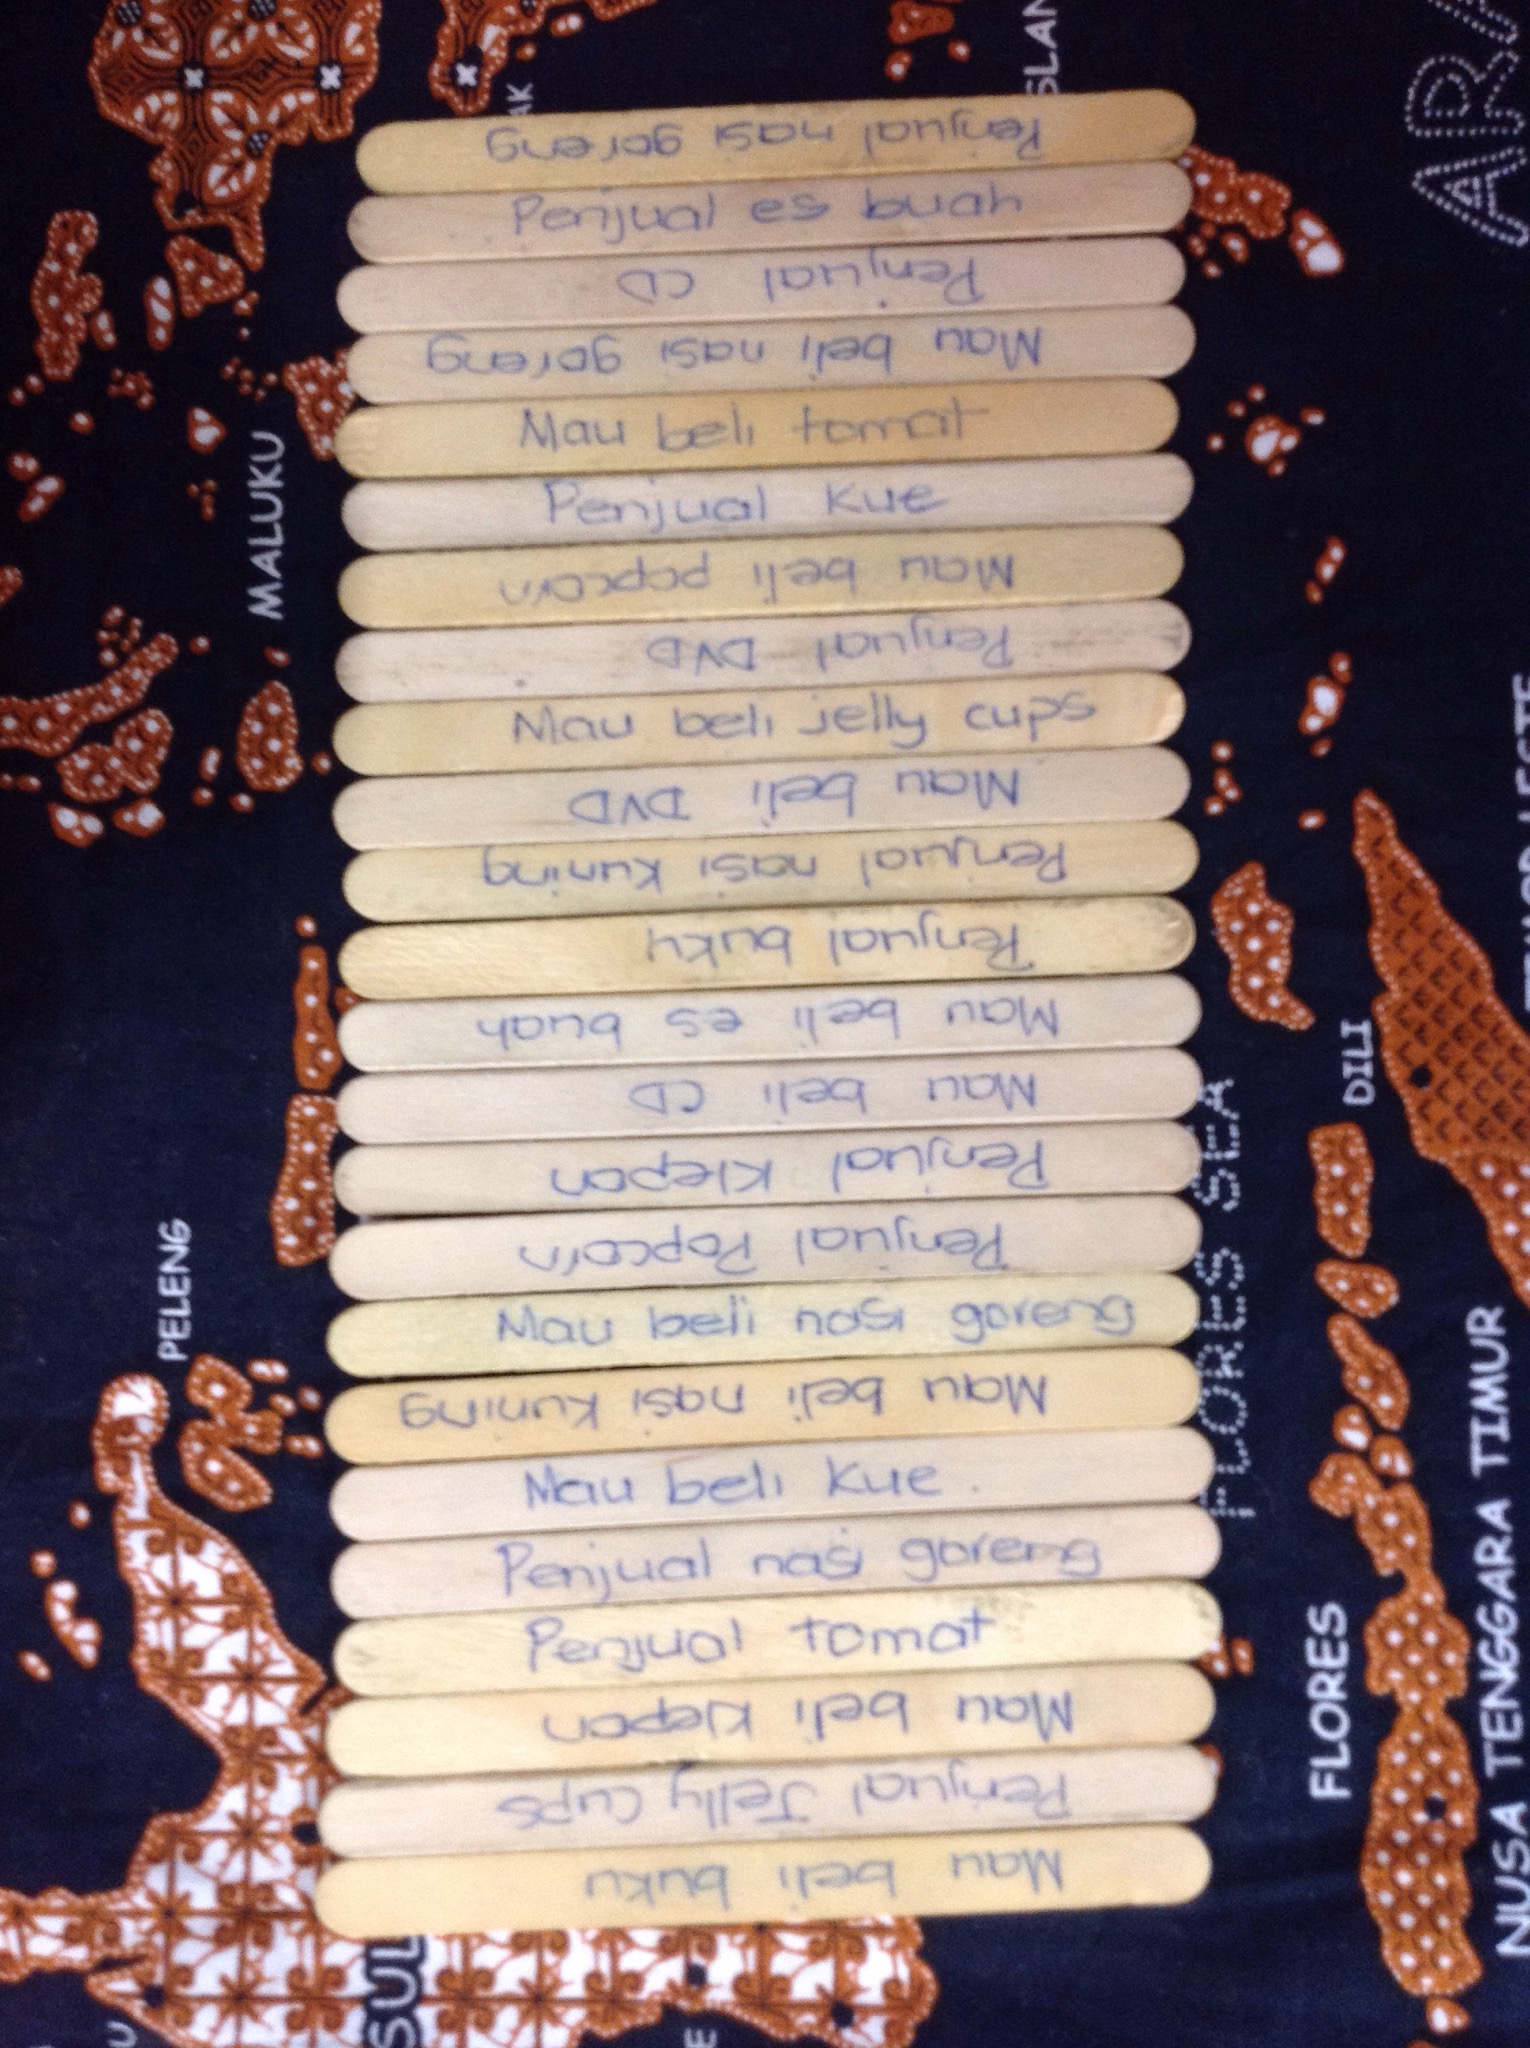 Penjual nasi goreng
Penjual es buah
Penjual CD
Mau beli nasi goreng
Mau beli tomat
Penjual kue
Mau beli popcorn
Penjual DVD
Mau beli jelly cups
Mau beli DVD
Penjual nasi kuning
Penjual buku
Mau beli es buah
Mau beli CD
Penjual Klepon
Penjual Popcorn
Mau beli nasi goreng
Mau beli nasi kuning
Mau beli kue.
Penjual nasi goreng
Penjual tomat
Mau beli klepon
Penjual Jelly Cups
Mau beli buku
MALUKU
PELENG
FLORES SEA
DILI
FLORES
NUSA TENGGARA TIMUR